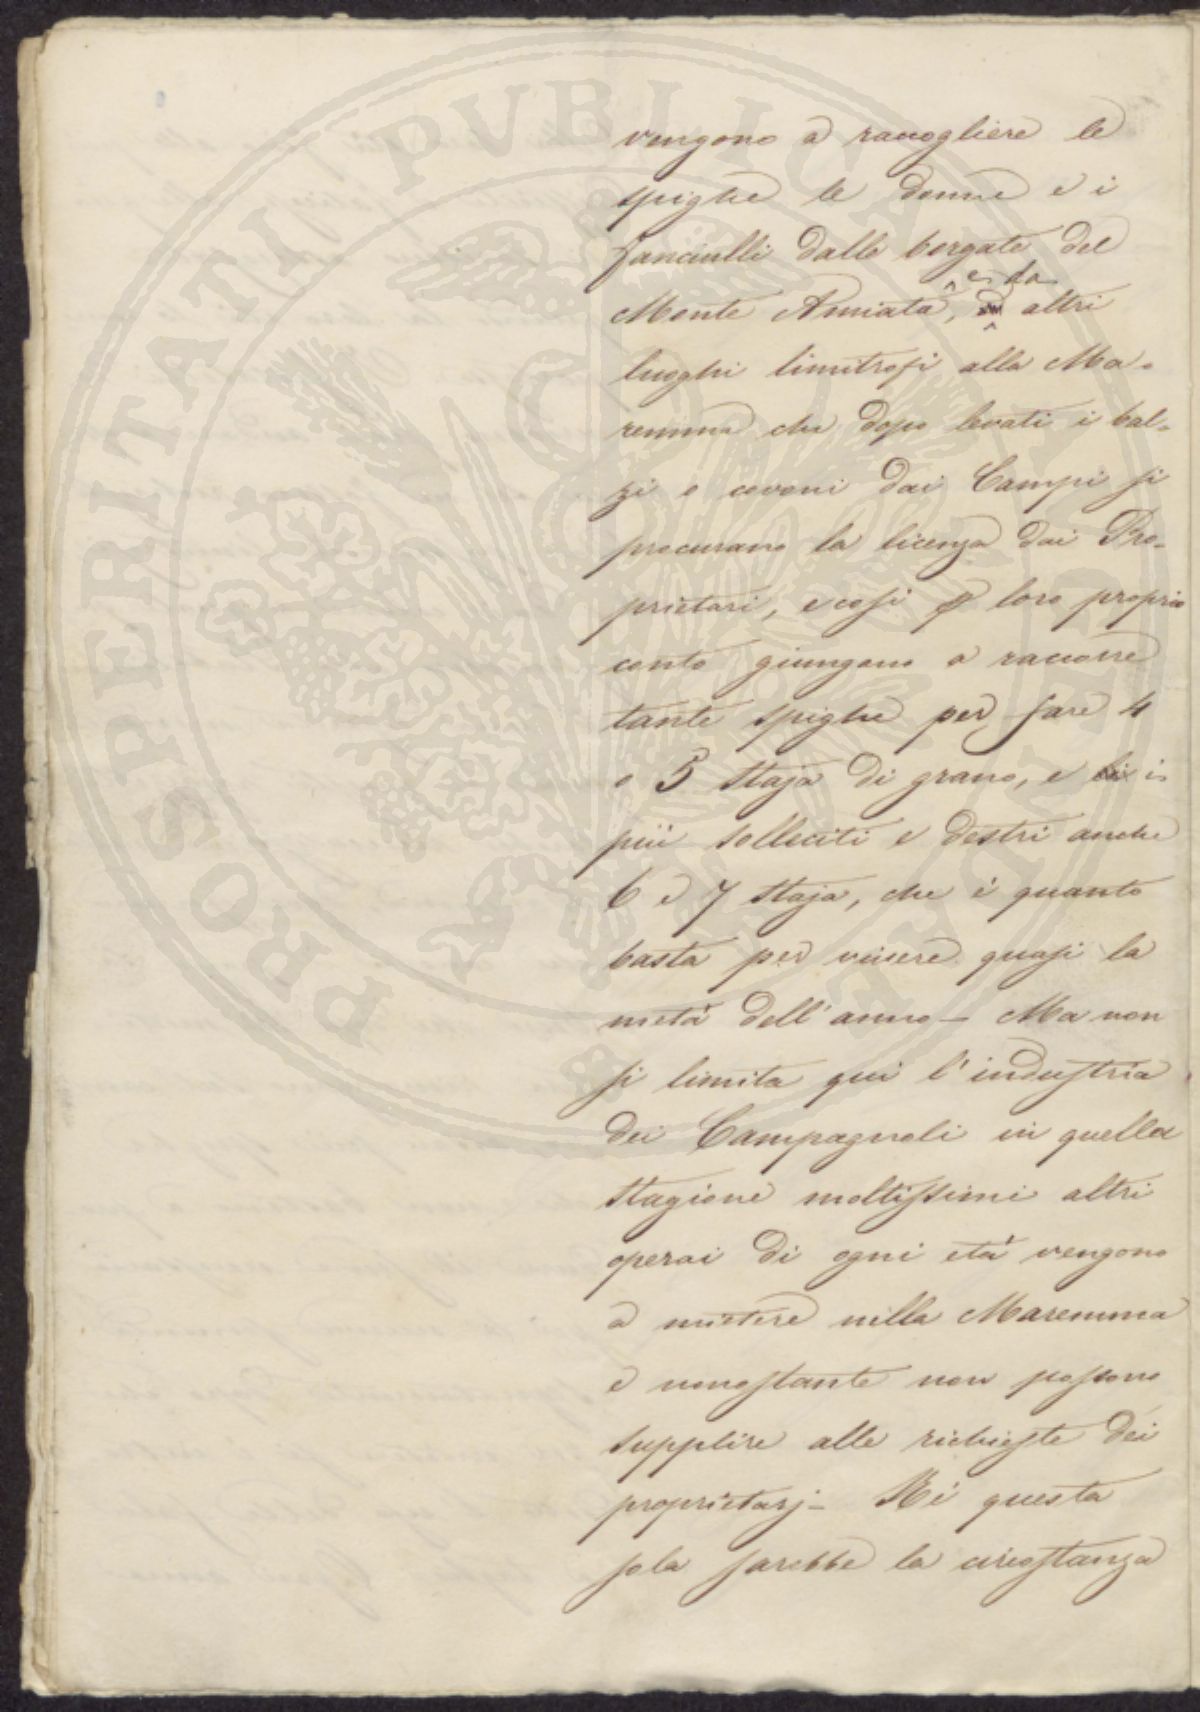 PROSPERITATI PVBLICAE AVGENDAE
vengono a raccogliere le
spighe le donne e i
fanciulli dalle borgate del
Monte Amiata, e da altri
luoghi limitrofi alla Ma-
remma che dopo levati i bal-
zi o covoni dai Campi si
procurano la licenza dai Pro-
prietari, e così p loro proprio
conto giungono a raccorre
tante spighe per fare 4
o 5 Staja di grano, e i
più solleciti e destri anche
6 e 7 Staja, che è quanto
basta per vivere quasi la
metà dell'anno – Ma non
si limita qui l'industria
dei Campagnoli in quella
Stagione moltissimi altri
operai di ogni età vengono
a mietere nella Maremma
e nonostante non possono
supplire alle richieste dei
proprietarj – Nè questa
sola sarebbe la circostanza